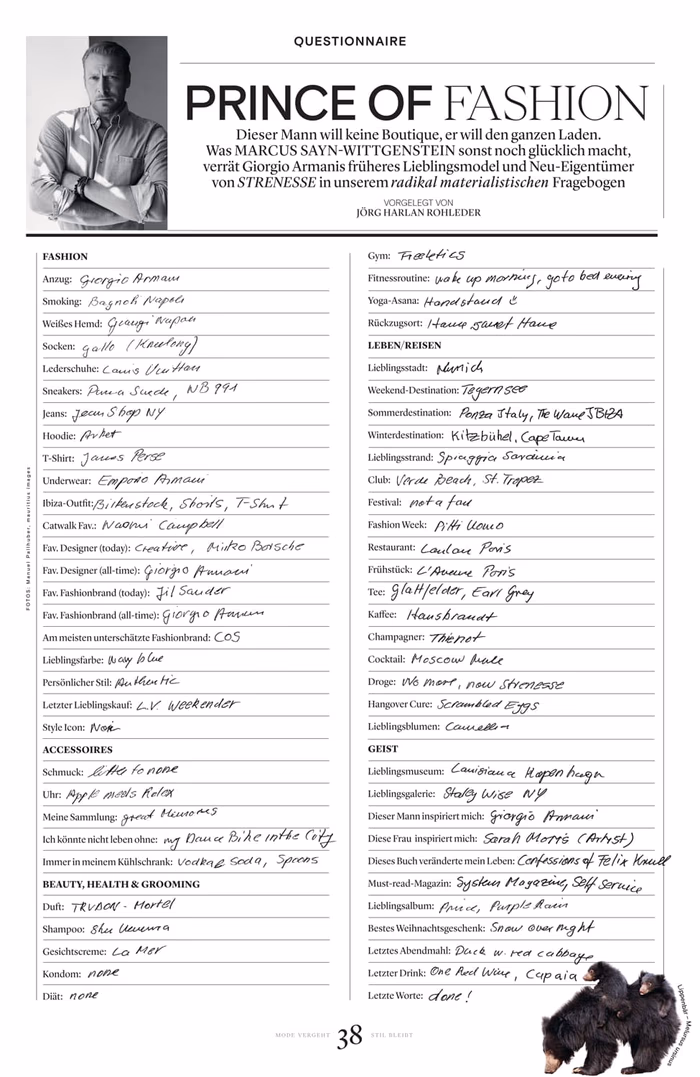 QUESTIONNAIRE
PRINCE OF FASHION
Dieser Mann will keine Boutique, er will den ganzen Laden.
Was MARCUS SAYN-WITTGENSTEIN sonst noch glücklich macht,
verrät Giorgio Armanis früheres Lieblingsmodel und Neu-Eigentümer
von STRENESSE in unserem radikal materialistischen Fragebogen
VORGELEGT VON
JÖRG HARLAN ROHLEDER
FOTOS: Manuel Pailhuber, mauritius images
FASHION
Anzug: Giorgio Armani
Smoking: Bagnoli Napoli
Weißes Hemd: Napoli
Socken: gallo (Kneelong)
Lederschuhe: Louis Vuitton
Sneakers: Puma Suede, NB 991
Jeans: Jean Shop NY
Hoodie: Arket
T-Shirt: James Perse
Underwear: Emporio Armani
Ibiza-Outfit: Birkenstock, Shorts, T-Shirt
Catwalk Fav.: Naomi Campbell
Fav. Designer (today): Creative, Mirko Borsche
Fav. Designer (all-time): Giorgio Armani
Fav. Fashionbrand (today): Jil Sander
Fav. Fashionbrand (all-time): Giorgio Armani
Am meisten unterschätzte Fashionbrand: COS
Lieblingsfarbe: Navy blue
Persönlicher Stil: Authentic
Letzter Lieblingskauf: L.V. Weekender
Style Icon:
ACCESSOIRES
Schmuck: little to none
Uhr: Apple meets Rolex
Meine Sammlung: great Memories
Ich könnte nicht leben ohne: my Dance Bike in the City
Immer in meinem Kühlschrank: Vodka & Soda, Spoons
BEAUTY, HEALTH & GROOMING
Duft: TRUDON - Mortel
Shampoo: Shu Uemura
Gesichtscreme: La Mer
Kondom: none
Diät: none
Gym: Freeletics
Fitnessroutine: wake up morning, go to bed evening
Yoga-Asana: Handstand
Rückzugsort: Home sweet Home
LEBEN/REISEN
Lieblingsstadt: Munich
Weekend-Destination: Tegernsee
Sommerdestination: Ponza Italy, The Wave IBIZA
Winterdestination: Kitzbühel, Cape Town
Lieblingsstrand: Spiaggia Sardinia
Club: Verde Beach, St. Tropez
Festival: not a fan
Fashion Week: Pitti Uomo
Restaurant: Paris
Frühstück: L'Avenue Paris
Tee: Glatfelder, Earl Grey
Kaffee: Hausbrandt
Champagner: Thienot
Cocktail: Moscow Mule
Droge: No more, now Strenesse
Hangover Cure: Scrambled Eggs
Lieblingsblumen: Camellia
GEIST
Lieblingsmuseum: Louisiana Kopenhagen
Lieblingsgalerie: Staley Wise NY
Dieser Mann inspiriert mich: Giorgio Armani
Diese Frau inspiriert mich: Sarah Morris (Artist)
Dieses Buch veränderte mein Leben: Confessions of Felix Krull
Must-read-Magazin: System Magazine, Self Service
Lieblingsalbum: Prince, Purple Rain
Bestes Weihnachtsgeschenk: Snow over night
Letztes Abendmahl: Duck w. red cabbage
Letzter Drink: One Red Wine, Cupaia
Letzte Worte: done!
Lippenbär – Melursus ursinus
MODE VERGEHT 38 STIL BLEIBT